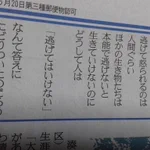 5月20日第三種郵便物認可
逃げて怒られるのは
人間ぐらい
ほかの生き物たちは
本能で逃げないと
生きていけないのに
どうして人は
「逃げてはいけない」
なんて答えに
たどりついたのだろう